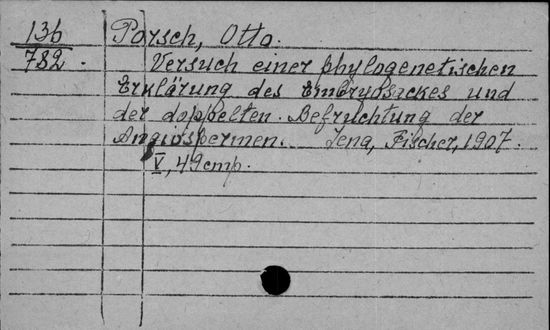 136 Porsch, Otto.
782. Versuch einer phylogenetischen
Erklärung des Embryosackes und
der doppelten Befruchtung der
Angiospermen. Jena, Fischer, 1907.
V, 49 стр.